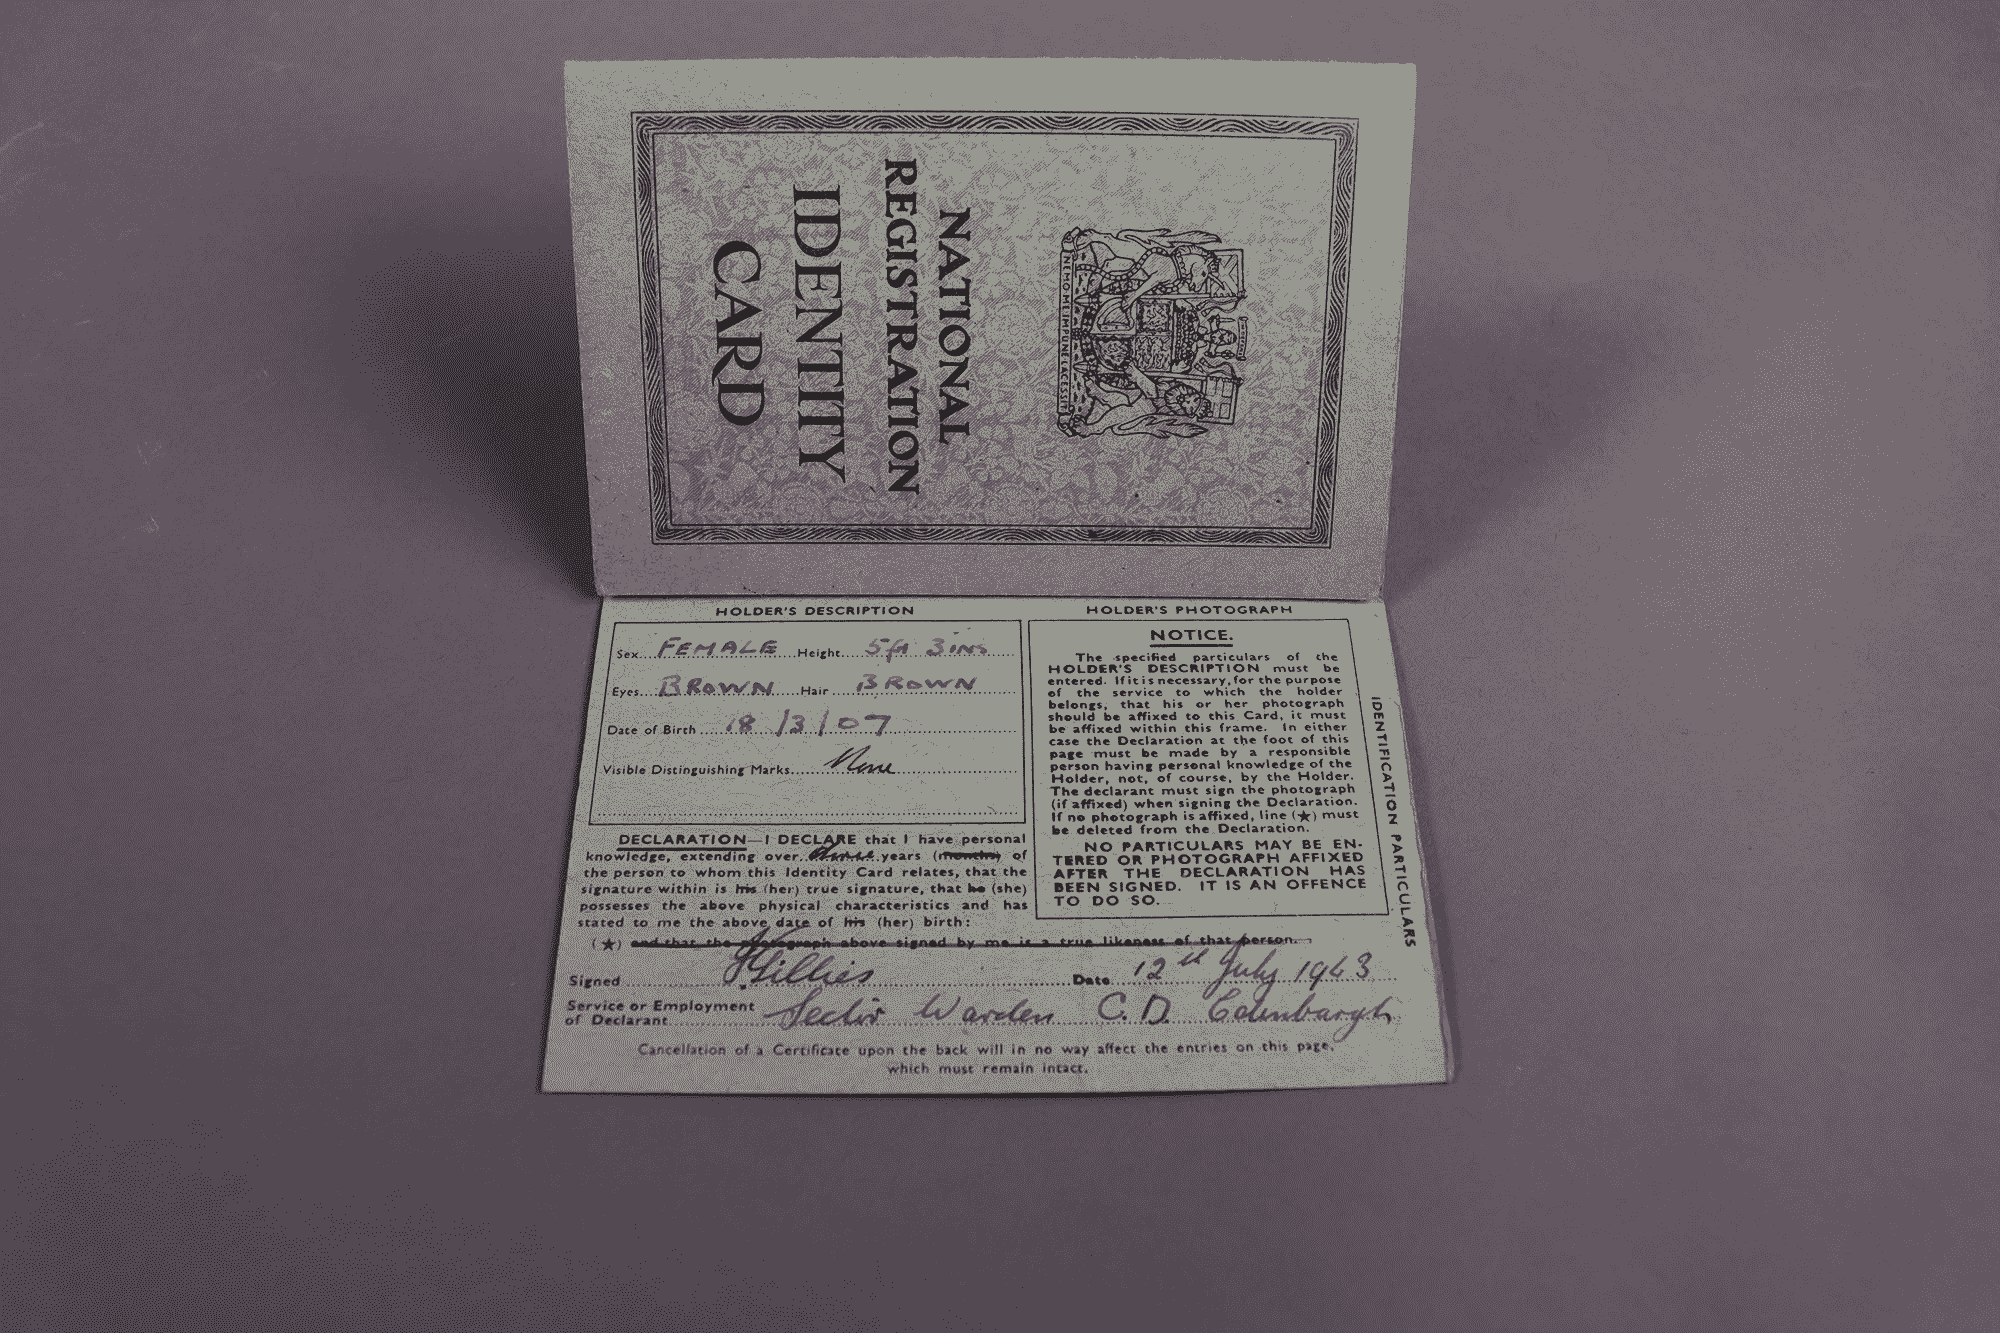 NATIONAL
REGISTRATION
IDENTITY
CARD
NEMO ME IMPUNE LACESSIT
HOLDER'S DESCRIPTION
Sex FEMALE Height 5ft 3ins
Eyes BROWN Hair BROWN
Date of Birth 18/3/07
Visible Distinguishing Marks None
DECLARATION—I DECLARE that I have personal
knowledge, extending over three years (months) of
the person to whom this Identity Card relates, that the
signature within is his (her) true signature, that he (she)
possesses the above physical characteristics and has
stated to me the above date of his (her) birth:
(★) and that the photograph above signed by me is a true likeness of that person.
HOLDER'S PHOTOGRAPH
NOTICE.
The specified particulars of the
HOLDER'S DESCRIPTION must be
entered. If it is necessary, for the purpose
of the service to which the holder
belongs, that his or her photograph
should be affixed to this Card, it must
be affixed within this frame. In either
case the Declaration at the foot of this
page must be made by a responsible
person having personal knowledge of the
Holder, not, of course, by the Holder.
The declarant must sign the photograph
(if affixed) when signing the Declaration.
If no photograph is affixed, line (★) must
be deleted from the Declaration.
NO PARTICULARS MAY BE EN-
TERED OR PHOTOGRAPH AFFIXED
AFTER THE DECLARATION HAS
BEEN SIGNED. IT IS AN OFFENCE
TO DO SO.
IDENTIFICATION PARTICULARS
Signed Gillies Date 12th July 1943
Service or Employment
of Declarant Sector Warden C.D. Edinburgh
Cancellation of a Certificate upon the back will in no way affect the entries on this page,
which must remain intact.